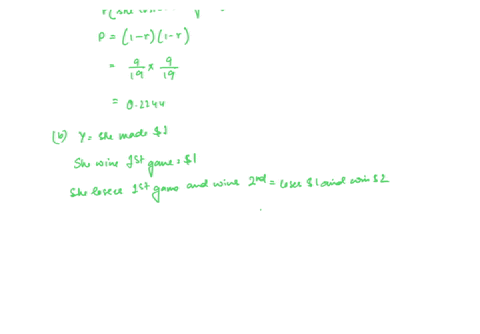 P = (1-r)(1-r)
= 9/19 × 9/19
= 0.2244
(b) Y = she made $1
She wins 1st game = $1
She losses 1st game and wins 2nd = loses $1 and win $2